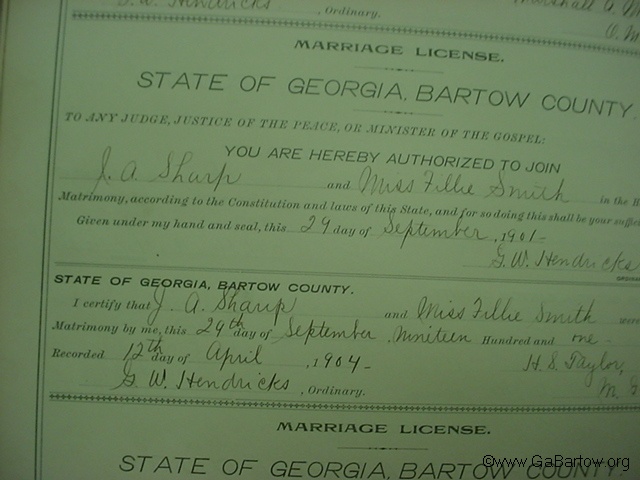 G. W. Hendricks , Ordinary.
Marshall A.
MARRIAGE LICENSE.
STATE OF GEORGIA, BARTOW COUNTY.
TO ANY JUDGE, JUSTICE OF THE PEACE, OR MINISTER OF THE GOSPEL:
YOU ARE HEREBY AUTHORIZED TO JOIN
J. A. Sharp and Miss Tillie Smith in the H
Matrimony, according to the Constitution and laws of this State, and for so doing this shall be your suffic
Given under my hand and seal, this 29 day of September , 1901-
G. W. Hendricks
ORDINA
STATE OF GEORGIA, BARTOW COUNTY.
I certify that J. A. Sharp and Miss Tillie Smith were
Matrimony by me, this 29th day of September Nineteen Hundred and one-
Recorded 12th day of April , 1904-
H. S. Taylor,
G. W. Hendricks , Ordinary.
M. G
MARRIAGE LICENSE.
STATE OF GEORGIA, BARTOW COUNTY.
©www.GaBartow.org